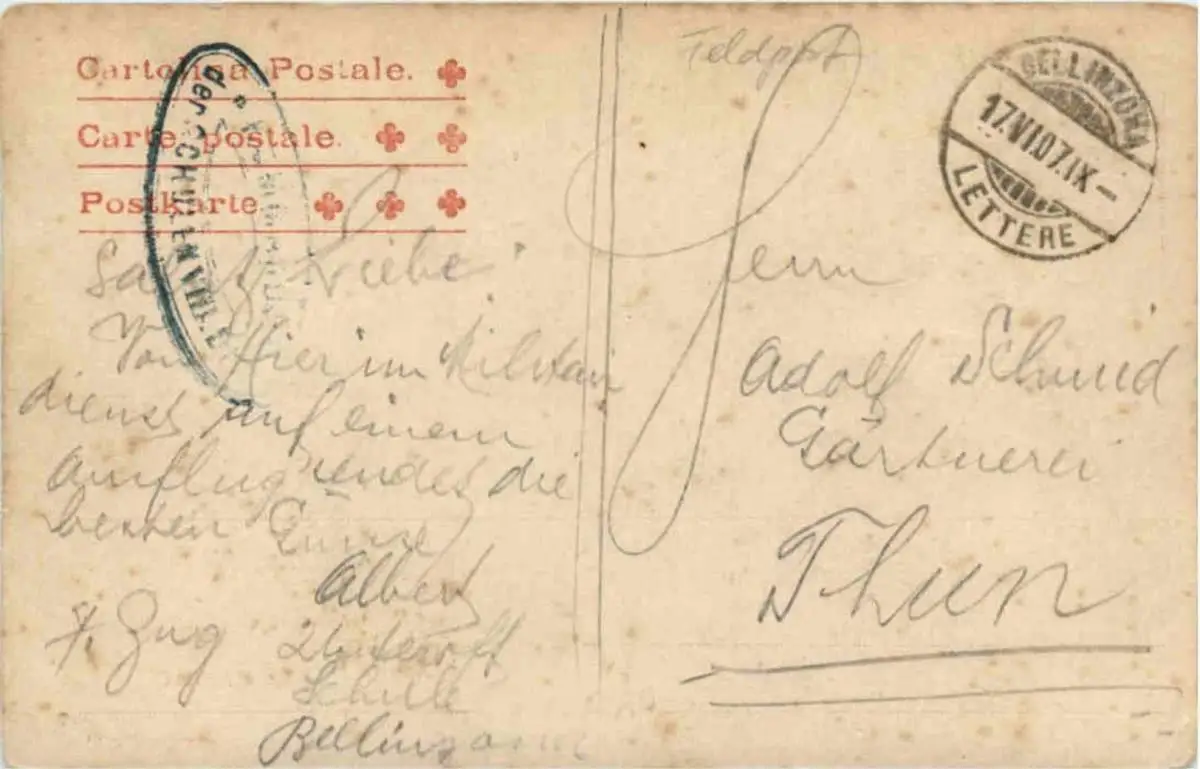 Cartolina Postale.
Carte postale.
Postkarte
Feldpost
BELLINZONA
17.VI.07.IX
LETTERE
der SCHIESSSCHULE WALLENSTADT
Liebe
Von Hier im Militär
dienst auf einem
Ausflug sendet die
besten Grüsse
Albert
7. Zug
Unteroff
Schule
Bellinzona
Herrn
Adolf Schmid
Gärtnerei
Thun